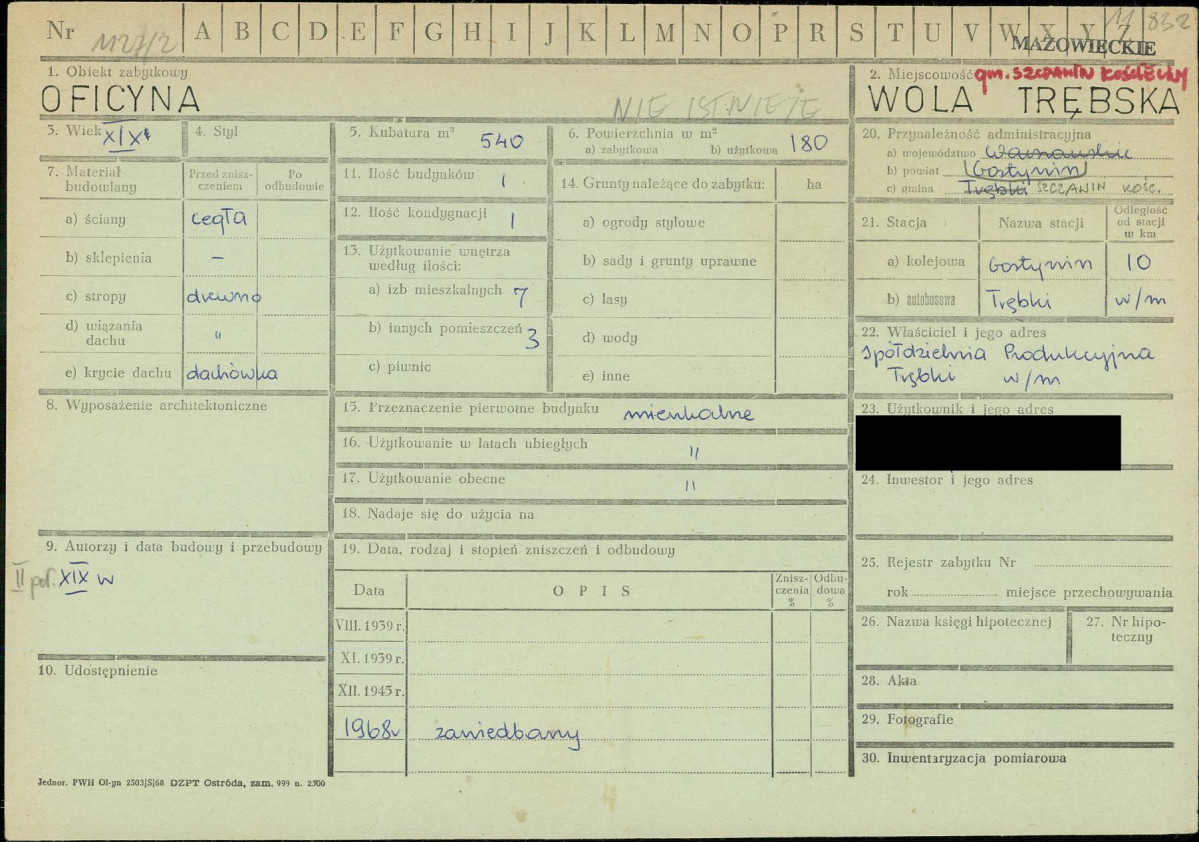 Nr 1127/2 A B C D E F G H I J K L M N O P R S T U V W X Y Z 832
MAZOWIECKIE
1. Obiekt zabytkowy
OFICYNA
NIE ISTNIEJE
2. Miejscowość gm. SZCZAWIN KOŚCIELNY
WOLA TRĘBSKA
3. Wiek XIX
4. Styl
5. Kubatura m³ 540
6. Powierzchnia w m²
a) zabytkowa b) użytkowa 180
7. Materiał budowlany
Przed zniszczeniem
Po odbudowie
a) ściany cegła
b) sklepienia –
c) stropy drewno
d) wiązania dachu "
e) krycie dachu dachówka
8. Wyposażenie architektoniczne
9. Autorzy i data budowy i przebudowy
II poł. XIX w
10. Udostępnienie
11. Ilość budynków 1
12. Ilość kondygnacji 1
13. Użytkowanie wnętrza
według ilości:
a) izb mieszkalnych 7
b) innych pomieszczeń 3
c) piwnic
14. Grunty należące do zabytku: ha
a) ogrody stylowe
b) sady i grunty uprawne
c) lasy
d) wody
e) inne
15. Przeznaczenie pierwotne budynku mieszkalne
16. Użytkowanie w latach ubiegłych "
17. Użytkowanie obecne "
18. Nadaje się do użycia na
19. Data, rodzaj i stopień zniszczeń i odbudowy
Data OPIS Zniszczenia % Odbudowa %
VIII. 1939 r.
XI. 1939 r.
XII. 1945 r.
1968r zaniedbany
20. Przynależność administracyjna
a) województwo Warszawskie
b) powiat Gostynin
c) gmina Trębki SZCZAWIN KOŚC.
21. Stacja Nazwa stacji Odległość od stacji w km
a) kolejowa Gostynin 10
b) autobusowa Trębki w/m
22. Właściciel i jego adres
Spółdzielnia Produkcyjna
Trębki w/m
23. Użytkownik i jego adres
24. Inwestor i jego adres
25. Rejestr zabytku Nr
rok miejsce przechowywania
26. Nazwa księgi hipotecznej
27. Nr hipoteczny
28. Akta
29. Fotografie
30. Inwentaryzacja pomiarowa
Jednor. PWH Ol-yn 2503|S|68 DZPT Ostróda, zam. 999 n. 2500